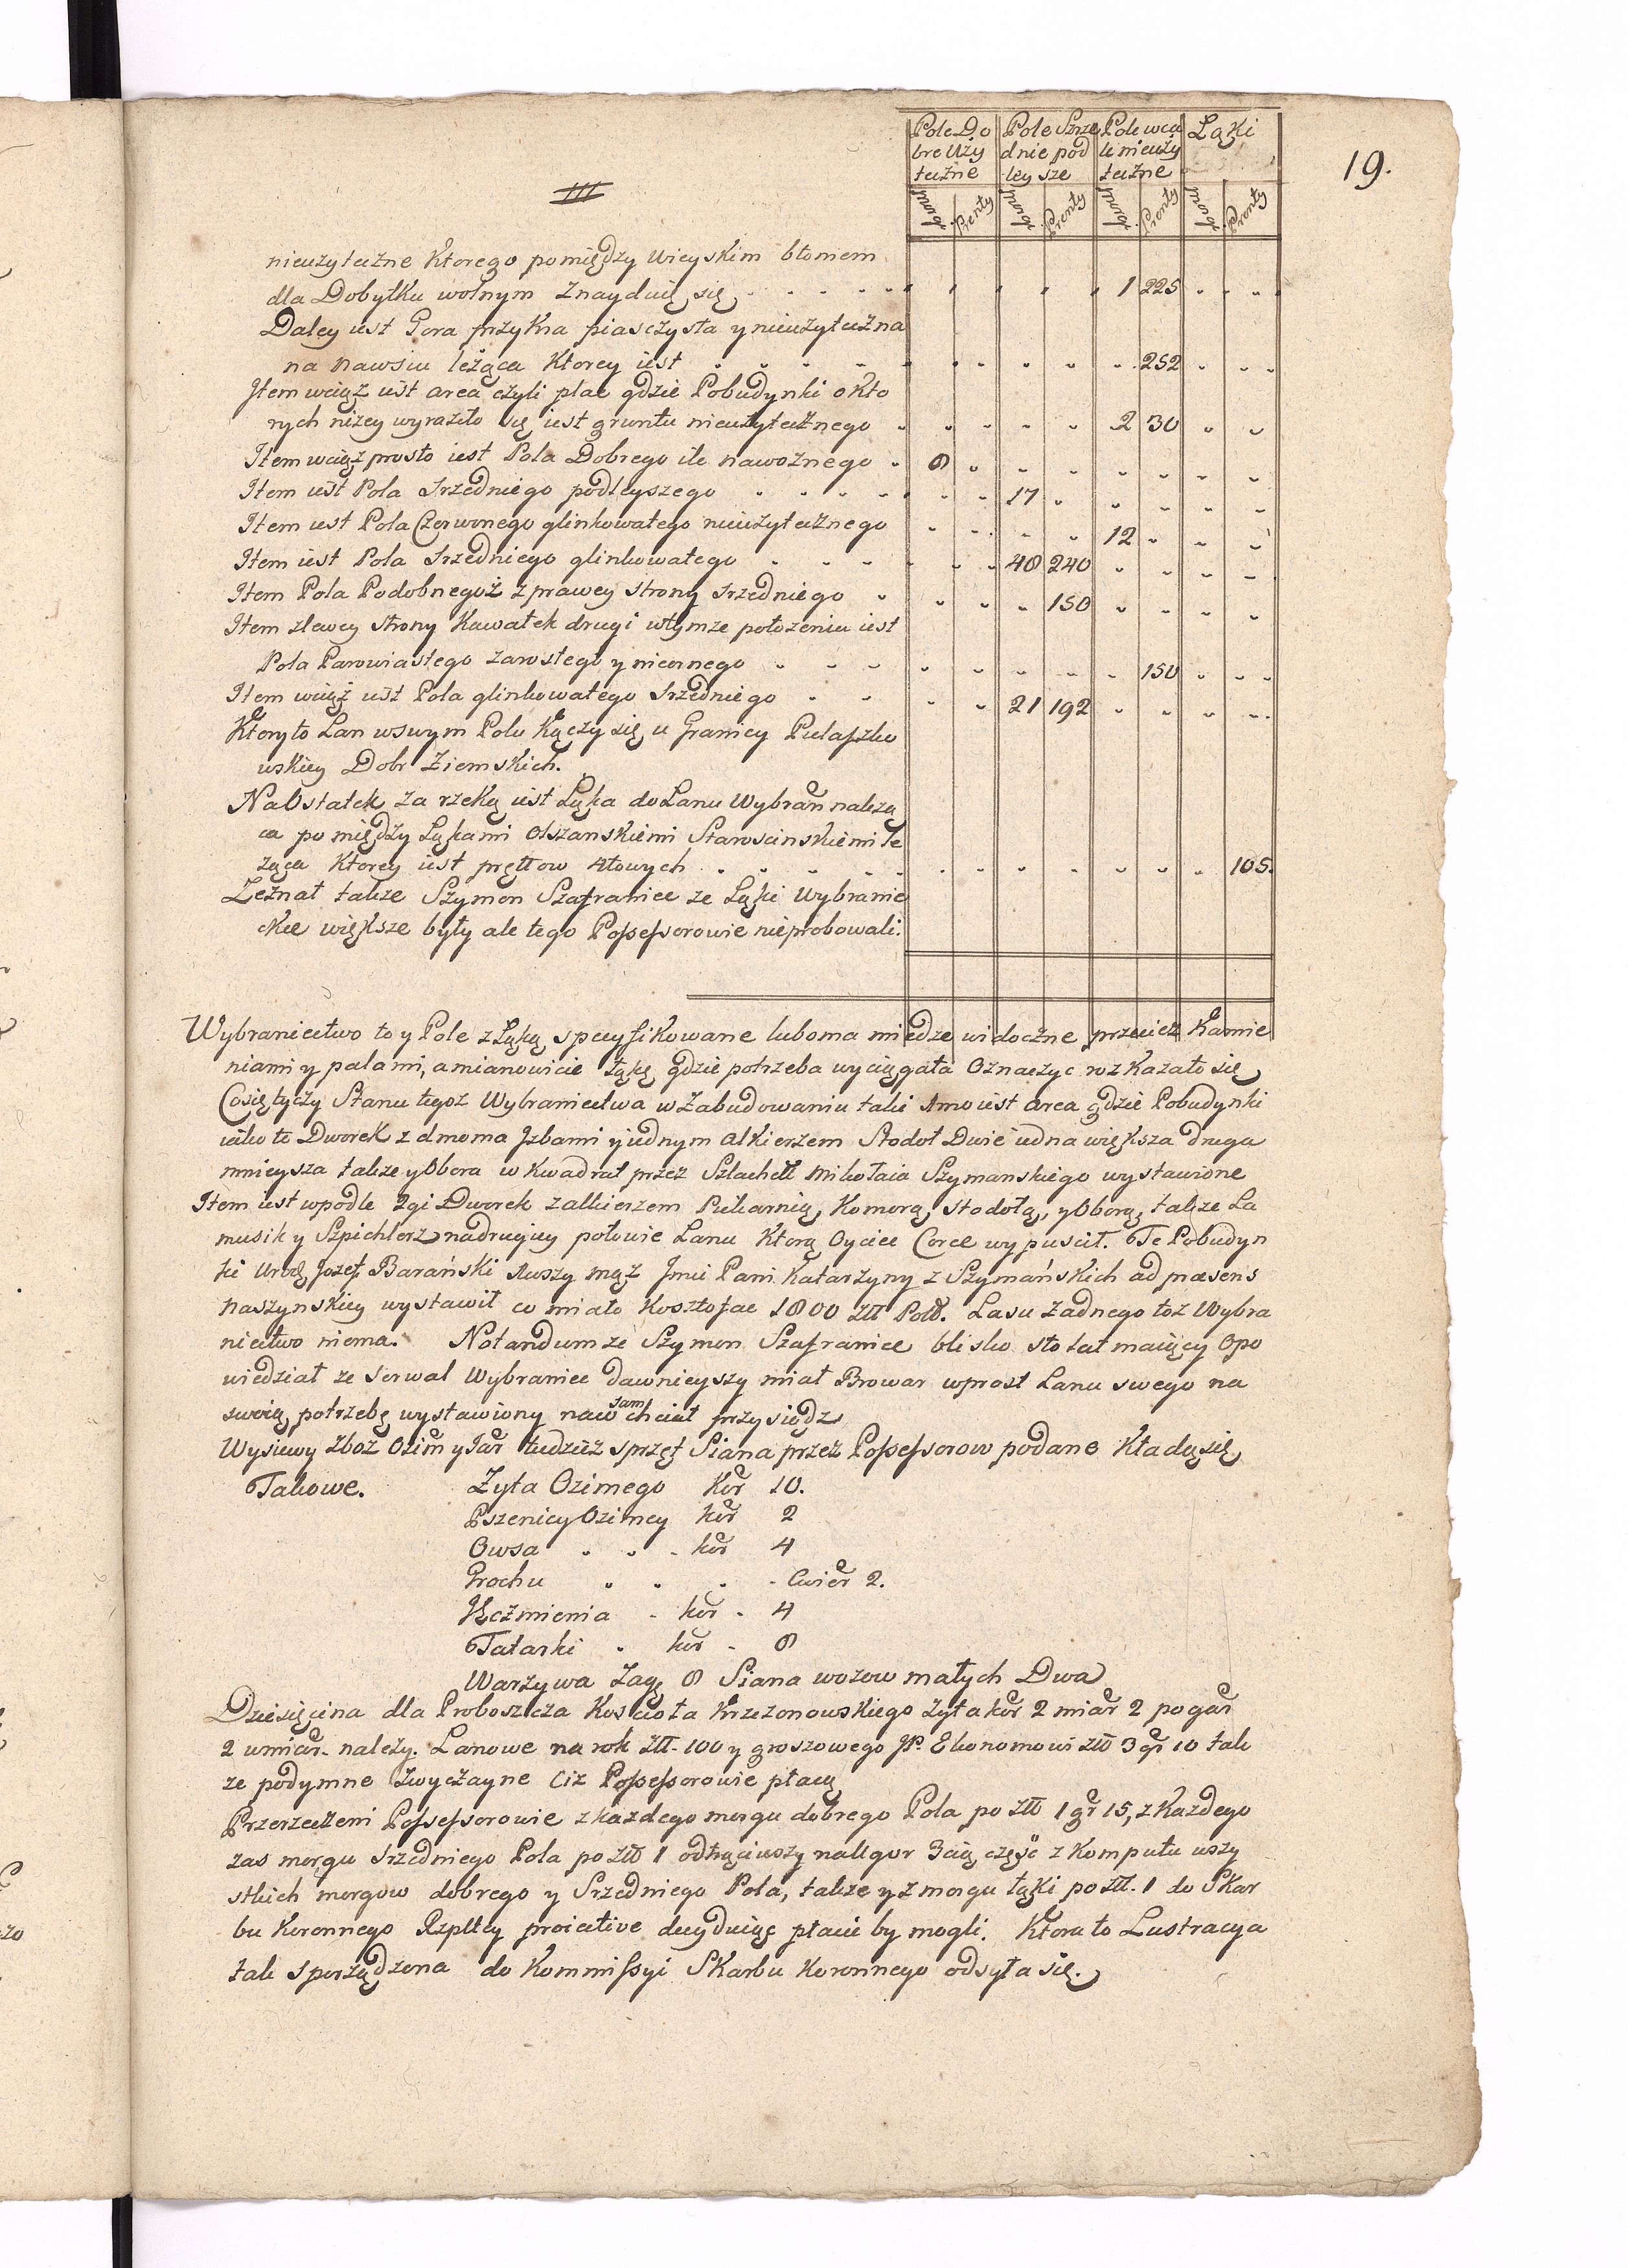 19.
Pole Do Pole Szrze Pole wca Łąki
bre Uży dnie pod le nieuży
teczne ley sze teczne
Morgi Prenty Morgi Prenty Morgi Prenty Morgi Prenty
III
nieużyteczne ktorego pomiędzy wieyskim błoniem
dla Dobytku wolnym znayduię się 1 225
Daley iest Gora przykra piasczysta y nieużyteczna
na nawsiu leżąca ktorey iest 252
Jtem wciąż iest area czyli plac gdzie Pobudynki o kto
rych niżey wyraziło się iest gruntu nieużytecznego 2 30
Jtem wciąż prosto iest Pola Dobrego ile nawoznego 8
Jtem iest Pola Srzedniego podleyszego 17
Jtem iest Pola Czerwonego glinkowatego nieużytecznego 12
Jtem iest Pola Srzedniego glinkowatego 48 240
Jtem Pola Podobnegoż z prawey strony srzedniego 150
Jtem z lewey strony Kawałek drugi w tymże położeniu iest
Pola Parowiastego zarosłego y niecornego 150
Jtem wciąż iest Pola glinkowatego Srzedniego 21 192
Który to Łan w swym Polu Kączy się u Granicy Pułaszko
wskiey Dobr Ziemskich.
Na Ostatek za rzeką iest Łąka do Łanu Wybrań należą
ca pomiędzy Łąkami Olszanskiemi Staroscinskiemi le
żąca ktorey iest prętow 4towych 105.
Zeznał także Szymon Szafraniec że Łąki Wybranie
ckie większe były ale tego Possessorowie nieprobowali.
Wybraniectwo to y Pole z Łąką specyfikowane luboma miedze widoczne przecież Kamie
niami y palami, a mianowicie łąkę gdzie potrzeba wyciągała Oznaczyc rozkazało się
Co się tyczy Stanu tegoż Wybraniectwa w Zabudowaniu taki Imo iest area gdzie Pobudynki
iako to Dworek z dwoma Jzbami y iednym alkierzem Stodoł Dwie iedna większa druga
mnieysza także y Obora w Kwadrat przez Szlachett Mikołaia Szymanskiego wystawione
Jtem iest wpodle 2gi Dworek z alkierzem Piekarnią, Komorą, stodołą, y Oborą, także La
musik y Szpichlerz na drugiey połowie Łanu Którą Oyciec Corce wypuscił. Te Pobudyn
ki Urodz Jozef Barański 1wszy mąż Jmci Pani Katarzyny z Szymańskich ad præsens
Naszynskiey wystawił co miało Kosztoſac 1800 złł Poll. Lasu Żadnego toż Wybra
niectwo niema. Notandum że Szymon Szafraniec blisko sto lat maiący Opo
wiedział że Serwal Wybraniec dawnieyszy miał Browar wprost Łanu swego na
swoią potrzebę wystawiony na co sam chciał przysiędz
Wysiewy Zboż Ozim y Jar tudzież sprzęt Siana przez Possessorow podane Kładą się
Takowe. Zyta Ozimego Kor 10.
Pszenicy Ozimey kor 2
Owsa kor 4
Grochu Cwier 2.
Jęczmienia kor 4
Tatarki kor 8
Warzywa Zag 8 Siana wozow małych Dwa
Dziesięcina dla Proboszcza Koscioła Krzczonowskiego Żyta kor 2 miar 2 po gar
2 w miar. należy. Łanowe na rok złł. 100 y groszowego JP. Ekonomowi złł 3 gr 10 tak
że podymne zwyczayne Ciż Possessorowie płacą
Przerzeczeni Possessorowie z każdego morgu dobrego Pola po złł 1 gr 15, z każdego
zas morgu srzedniego Pola po złł 1 odtrąciwszy na Ugor 3cią część z Komputu wszy
stkich morgow dobrego y Srzedniego Pola, także y z morgu łąki po złł. 1 do Skar
bu Koronnego Rzpltey decyduią płacić by mogli. Która to Lustracya
tak sporządzona do Kommissyi Skarbu Koronnego odsyła się.